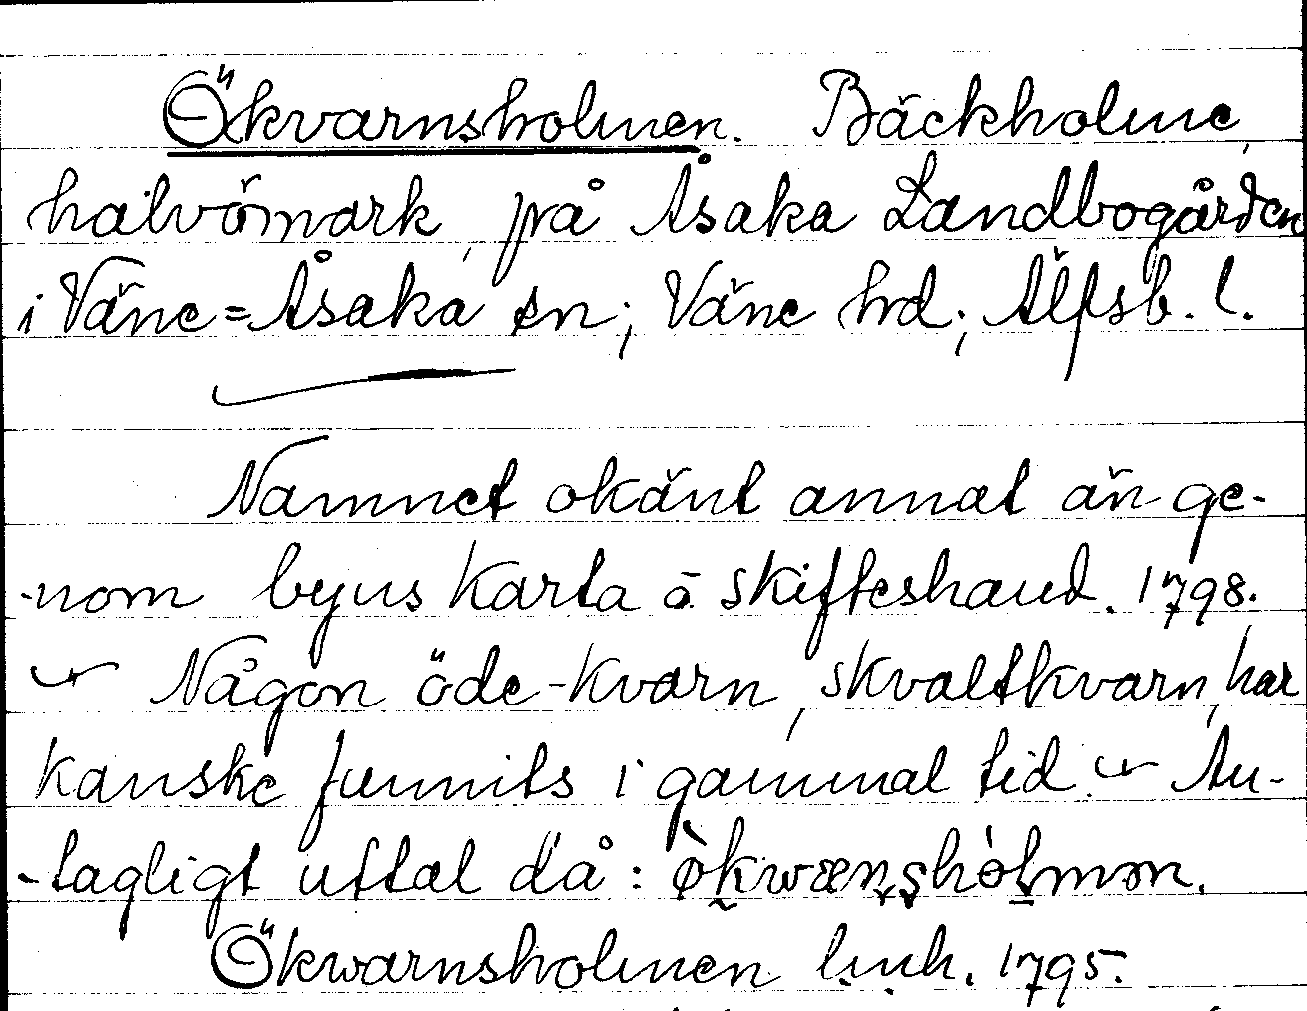 Ökvarnsholmen. Bäckholme,
halvömark, på Åsaka Landbogården
i Väne=Åsaka sn; Väne hd; Älfsb. l.
Namnet okänt annat än ge-
-nom byns karta å skifteshand. 1798.
Någon öde-kvarn, skvaltkvarn, har
kanske funnits i gammal tid. An-
-tagligt uttal då: økwænsholmən.
Ökwarnsholmen 1795.